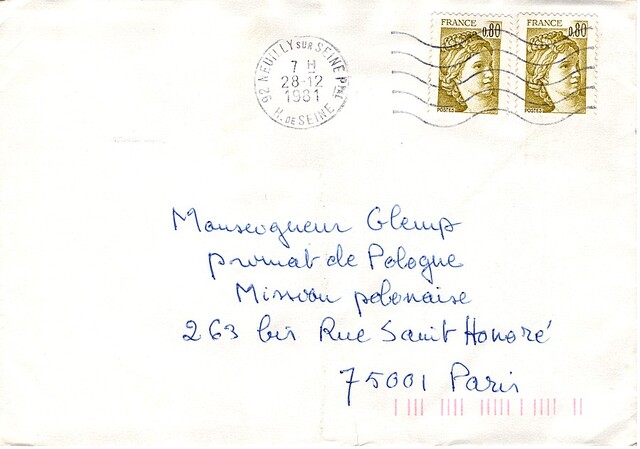 92 NEUILLY SUR SEINE Pᵃˡ
7 H
28-12
1981
H. DE SEINE
FRANCE 0,80
POSTES
FRANCE 0,80
POSTES
Monseogneur Glemp
primat de Pologne
Mission polonaise
263 bis Rue Saint Honoré
75001 Paris